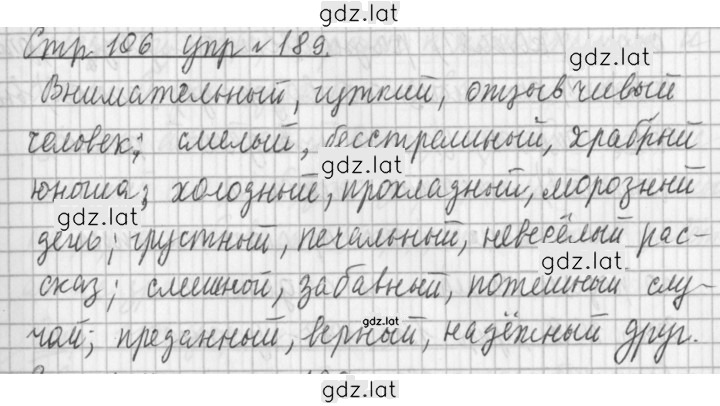 gdz.lat
Стр. 106 упр № 189.
gdz.lat
Внимательный, чуткий, отзывчивый
человек; смелый, бесстрашный, храбрый
gdz.lat
юноша; холодный, прохладный, морозный
gdz.lat
день; грустный, печальный, невесёлый рас-
gdz.lat
сказ; смешной, забавный, потешный слу-
gdz.lat
чай; преданный, верный, надёжный друг.
gdz.lat